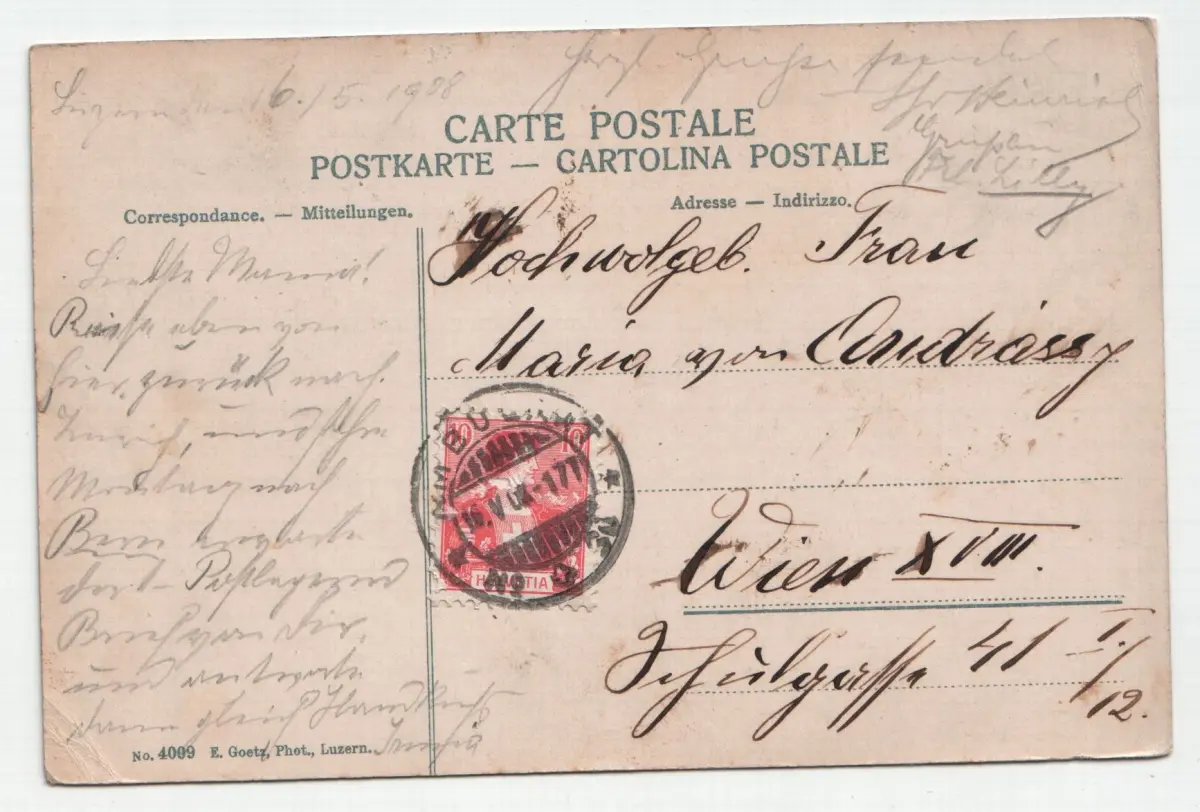 Luzern den 16./5. 1908
Herzl. Grüsse sendet
Heinrich
CARTE POSTALE
POSTKARTE — CARTOLINA POSTALE
Frl. Lilly
Correspondance. — Mitteilungen.
Adresse — Indirizzo.
Liebste Mama!
Reise eben von
hier zurück nach
Zürich, und fahre
Montag nach
Bern erwarte
dort Postlagernd
Brief von Dir,
und antworte
dann gleich Handkuss
Hochwolgeb. Frau
Maria von Andrássy
Wien XVIII.
Schulgasse 41 I./
12.
10 10
16.V.08.-17
HELVETIA
No. 4009 E. Goetz, Phot., Luzern.